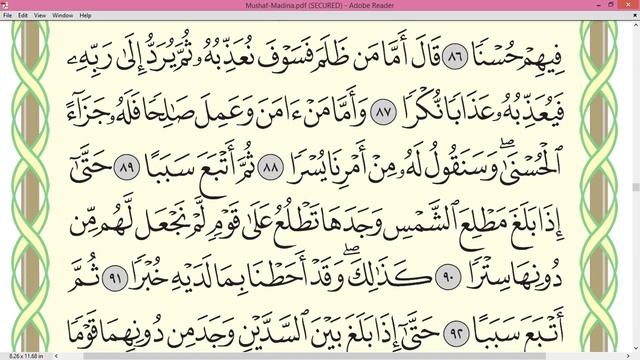 Mushaf-Madina.pdf (SECURED) - Adobe Reader
File Edit View Window Help
فِيهِمْ حُسْنًا ٨٦ قَالَ أَمَّا مَن ظَلَمَ فَسَوْفَ نُعَذِّبُهُۥ ثُمَّ يُرَدُّ إِلَىٰ رَبِّهِۦ
فَيُعَذِّبُهُۥ عَذَابًا نُّكْرًا ٨٧ وَأَمَّا مَنْ ءَامَنَ وَعَمِلَ صَٰلِحًا فَلَهُۥ جَزَآءً
ٱلْحُسْنَىٰ ۖ وَسَنَقُولُ لَهُۥ مِنْ أَمْرِنَا يُسْرًا ٨٨ ثُمَّ أَتْبَعَ سَبَبًا ٨٩ حَتَّىٰٓ
إِذَا بَلَغَ مَطْلِعَ ٱلشَّمْسِ وَجَدَهَا تَطْلُعُ عَلَىٰ قَوْمٍ لَّمْ نَجْعَل لَّهُم مِّن
دُونِهَا سِتْرًا ٩٠ كَذَٰلِكَ ۖ وَقَدْ أَحَطْنَا بِمَا لَدَيْهِ خُبْرًا ٩١ ثُمَّ
أَتْبَعَ سَبَبًا ٩٢ حَتَّىٰٓ إِذَا بَلَغَ بَيْنَ ٱلسَّدَّيْنِ وَجَدَ مِن دُونِهِمَا قَوْمًا
8.26 x 11.68 in